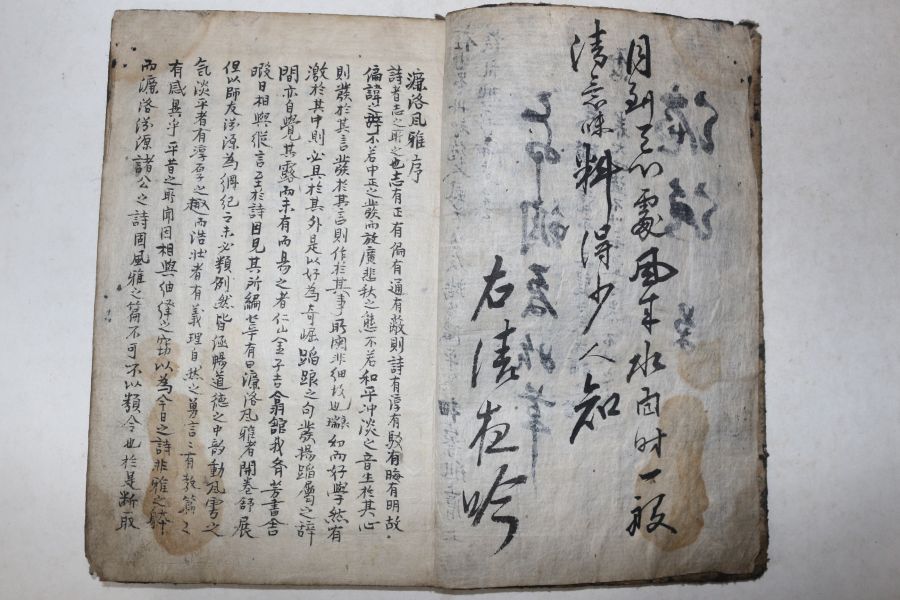 月到天心處風來水面時一般
清意味料得少人知
右淸夜吟
濂洛風雅序
詩者志之所之也志有正有偏有通有蔽則詩有淳有駁有晦有明故
偏之辞不若中正之發而放廣悲秋之態不若和平冲淡之音生於其心
則發於其言發於其言則作於其事所関非細故也初而好學然有
激於其中則必具於其外是以好為奇崛蹈踉之句發揚蹈厲之辞
間亦自覺其露而未有而易之者仁山金子吉翁舘我齊芳書舎
暇日相與縱言至於詩因見其所編有曰濂洛風雅者開卷舒展
但以師友淵源為綱紀之未必類例然皆涵暢道德之中韵動風雩之
氣淡平者有淳厚之趣而浩壮者有義理自然之勇言〻有教篇〻
有感異乎平昔之所聞因相與紬繹之窃以為今日之詩非雅之體
而濂洛淵源諸公之詩固風雅之篇不可不以類合也於是斷取